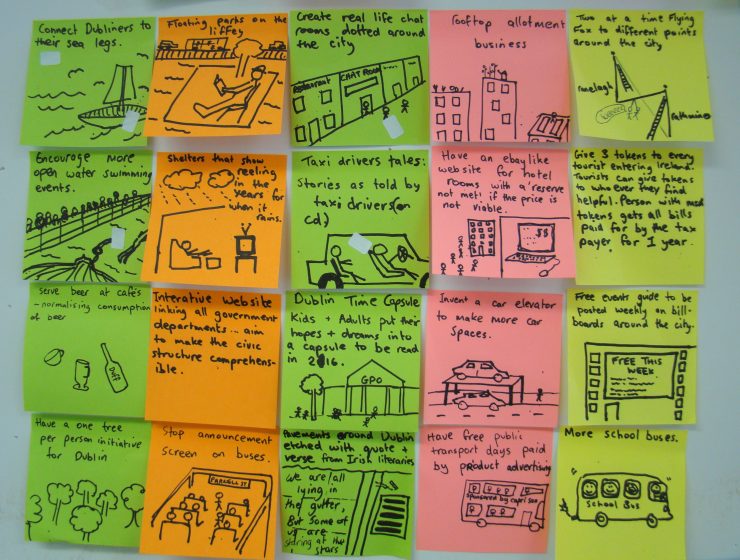 Connect Dubliners to
their sea legs.
Floating parks on the
liffey
Create real life chat
rooms dotted around
the city
Restaurant
CHAT ROOM
rooftop allotment
business
Two at a time Flying
Fox to different points
around the city
ranelagh
Rathmines
Encourage more
open water swimming
events.
Shelters that show
reeling in
the years
for when it
rains.
Taxi drivers tales:
Stories as told by
taxi drivers (on
cd)
Have an ebay like
website for hotel
rooms with a 'reserve
not met' if the price is
not viable.
$$
Give 3 tokens to every
tourist entering Ireland.
Tourists can give tokens
to who ever they find
helpful. Person with most
tokens gets all bills
paid for by the tax
payer for 1 year.
Serve beer at cafés
- normalising consumption
of beer
Duff
Interative website
linking all government
departments... aim
to make the civic
structure comprehens-
ible.
Dublin Time Capsule
Kids + Adults put their
hopes + dreams into
a capsule to be read
in 2116.
GPO
Invent a car elevator
to make more car
Spaces.
Free events guide to be
posted weekly on bill-
boards around the city.
FREE THIS
WEEK
Have a one tree
per person initiative
for Dublin
Stop announcement
screen on buses.
PARNELL ST
Pavements around Dublin
etched with quote +
verse from Irish literaries
we are all
lying in
the gutter,
But some of
us are
staring at the
stars
Have free public
transport days paid
by product advertising
sponsored by capri sun
More school buses.
School Bus